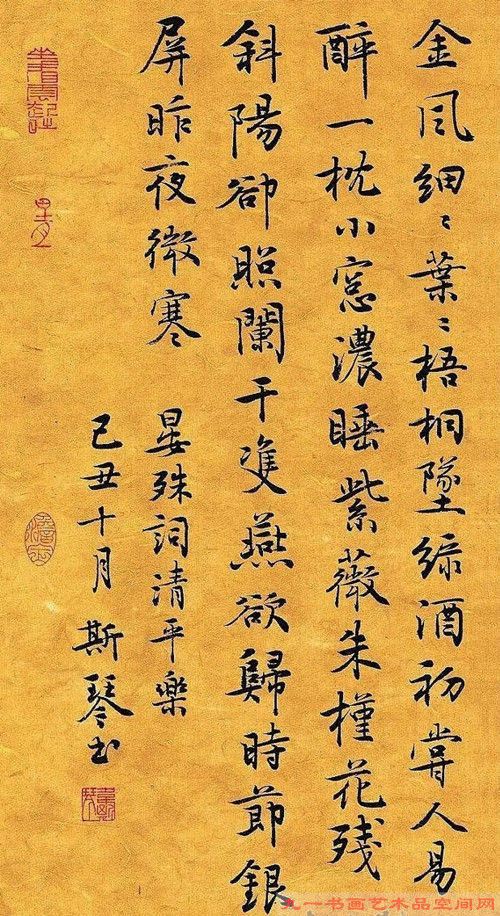 金風細〻葉〻梧桐墜綠酒初嘗人易
醉一枕小窓濃睡紫薇朱槿花残
斜陽卻照闌干雙燕欲歸時節銀
屏昨夜微寒
晏殊詞清平樂
己丑十月斯琴書
九一书画艺术品空间网